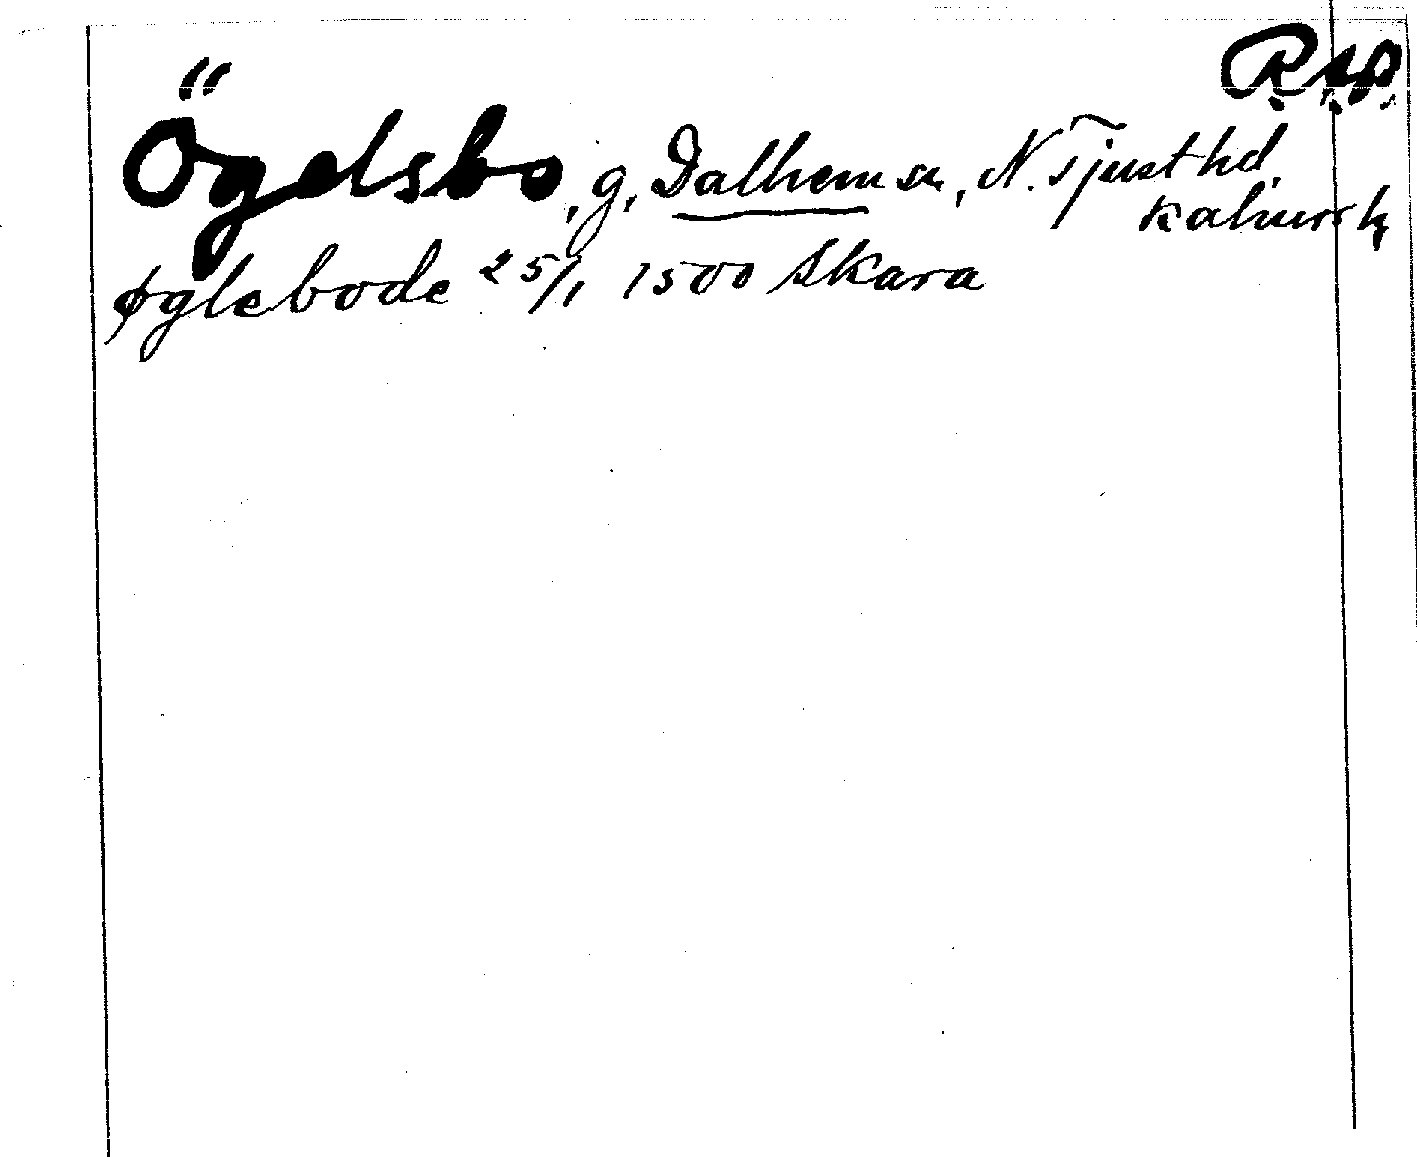 R.A.P.
Ögelsbo, g, Dalhem sn, N. Tjust hd,
Kalmar
øglebode 25/1 1500 Skara